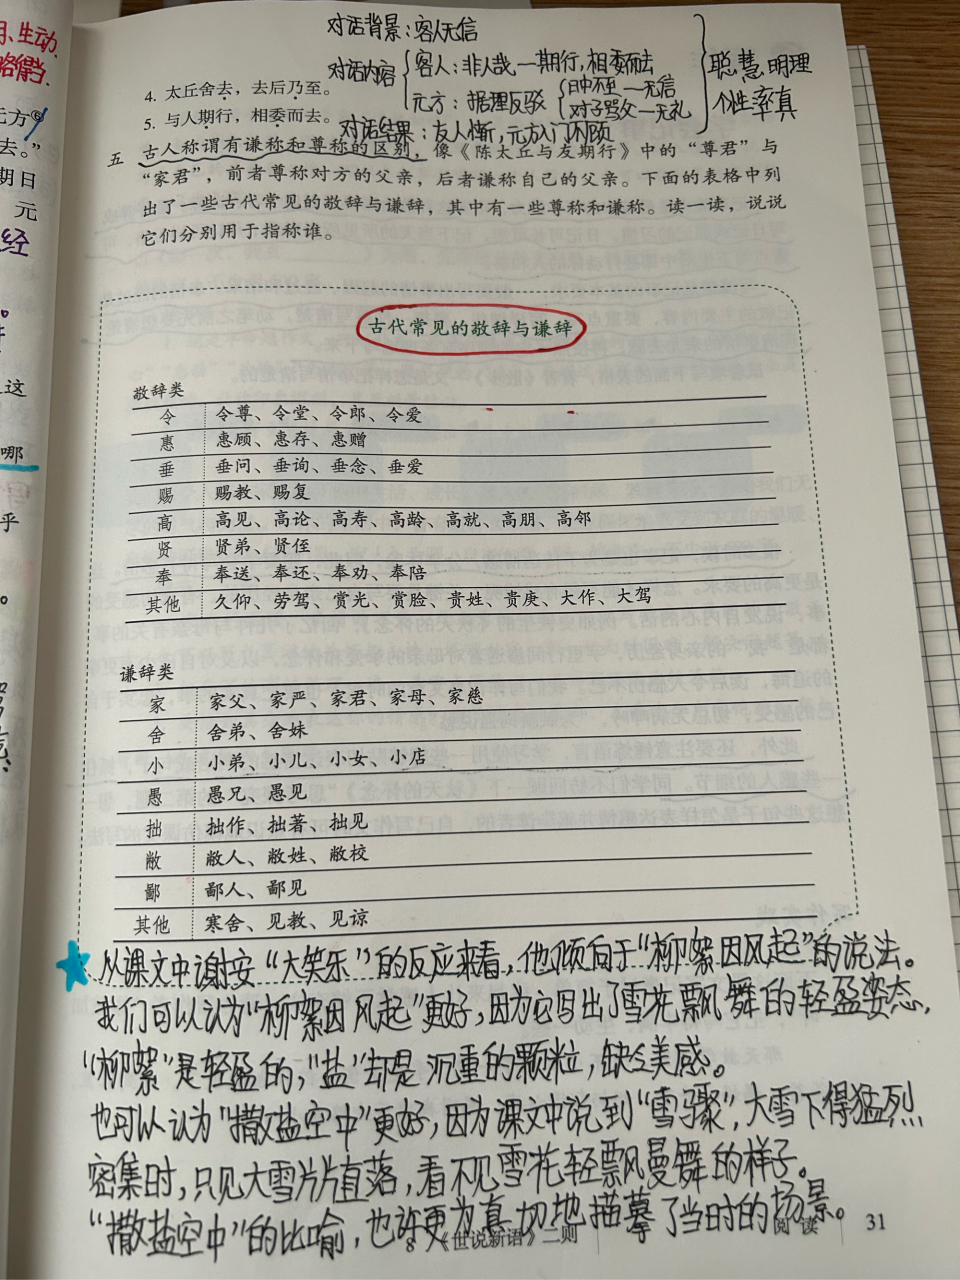 对话背景：客人无信
对话内容
客人：非人哉 一期行，相委而去
元方：据理反驳
日中不至 — 无信
对子骂父 — 无礼
对话结果：友人惭，元方入门不顾
聪慧明理
个性率真
4. 太丘舍去，去后乃至。
5. 与人期行，相委而去。
五 古人称谓有谦称和尊称的区别，像《陈太丘与友期行》中的“尊君”与
“家君”，前者尊称对方的父亲，后者谦称自己的父亲。下面的表格中列
出了一些古代常见的敬辞与谦辞，其中有一些尊称和谦称。读一读，说说
它们分别用于指称谁。
古代常见的敬辞与谦辞
敬辞类
令 令尊、令堂、令郎、令爱
惠 惠顾、惠存、惠赠
垂 垂问、垂询、垂念、垂爱
赐 赐教、赐复
高 高见、高论、高寿、高龄、高就、高朋、高邻
贤 贤弟、贤侄
奉 奉送、奉还、奉劝、奉陪
其他 久仰、劳驾、赏光、赏脸、贵姓、贵庚、大作、大驾
谦辞类
家 家父、家严、家君、家母、家慈
舍 舍弟、舍妹
小 小弟、小儿、小女、小店
愚 愚兄、愚见
拙 拙作、拙著、拙见
敝 敝人、敝姓、敝校
鄙 鄙人、鄙见
其他 寒舍、见教、见谅
从课文中谢安“大笑乐”的反应来看，他倾向于“柳絮因风起”的说法。
我们可以认为“柳絮因风起”更好，因为它写出了雪花飘舞的轻盈姿态，
“柳絮”是轻盈的，“盐”却是沉重的颗粒，缺乏美感。
也可以认为“撒盐空中”更好，因为课文中说到“雪骤”，大雪下得猛烈
密集时，只见大雪片片直落，看不见雪花轻飘曼舞的样子。
“撒盐空中”的比喻，也许更为真切地描摹了当时的场景。
8 《世说新语》二则
阅读 31
生动
元方⑥
去。”
期日
元
经
这
哪
乎